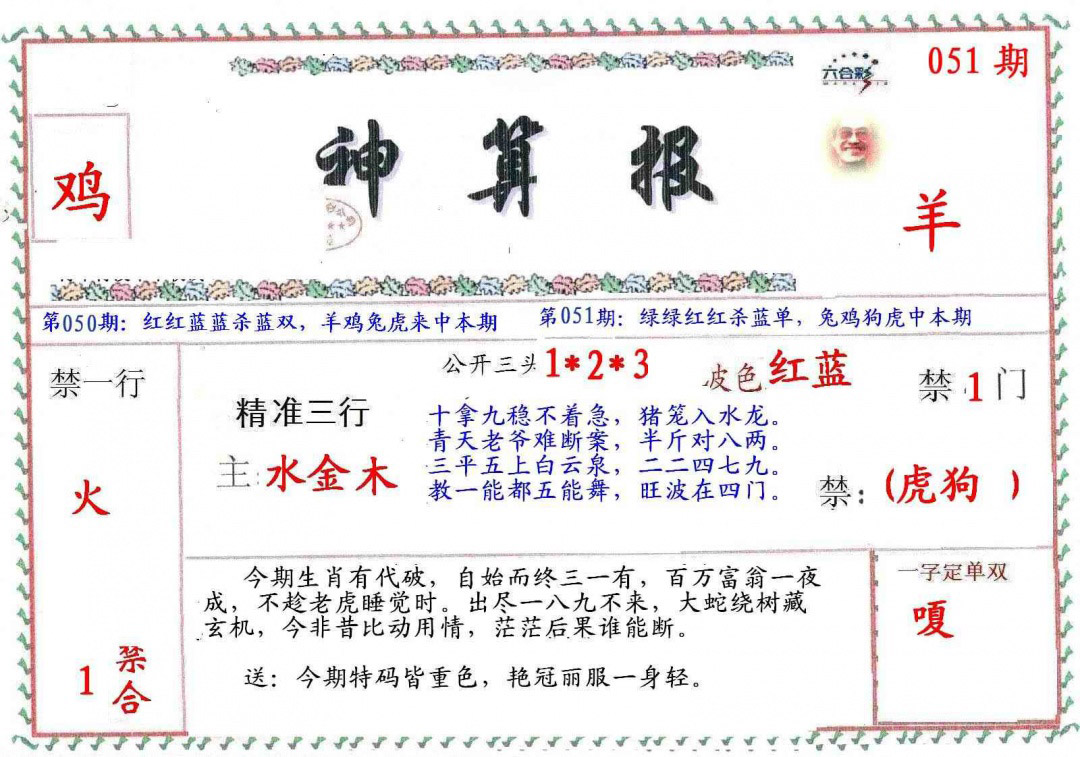 六合彩
051期
神算报
鸡
羊
第050期：红红蓝蓝杀蓝双，羊鸡兔虎来中本期
第051期：绿绿红红杀蓝单，兔鸡狗虎中本期
禁一行
火
1禁合
精准三行
主：水金木
公开三头1*2*3
波色红蓝
十拿九稳不着急，猪笼入水龙。
青天老爷难断案，半斤对八两。
三平五上白云泉，二二四七九。
教一能都五能舞，旺波在四门。
禁1门
禁：(虎狗)
今期生肖有代破，自始而终三一有，百万富翁一夜
成，不趁老虎睡觉时。出尽一八九不来，大蛇绕树藏
玄机，今非昔比动用情，茫茫后果谁能断。
送：今期特码皆重色，艳冠丽服一身轻。
一字定单双
嗄